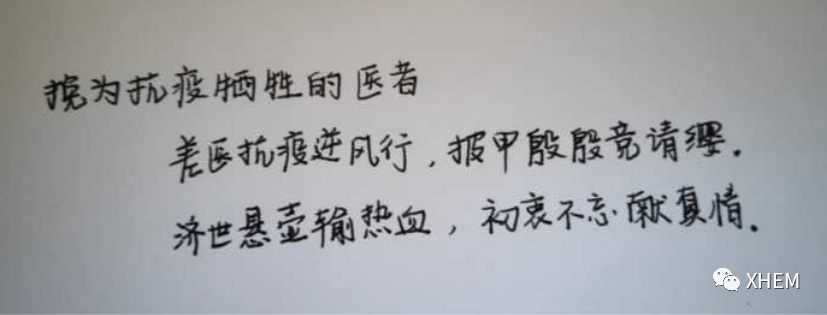 挽为抗疫牺牲的医者
差医抗疫逆风行，报甲殷殷竞请缨。
济世悬壶输热血，初衷不忘献真情。
XHEM